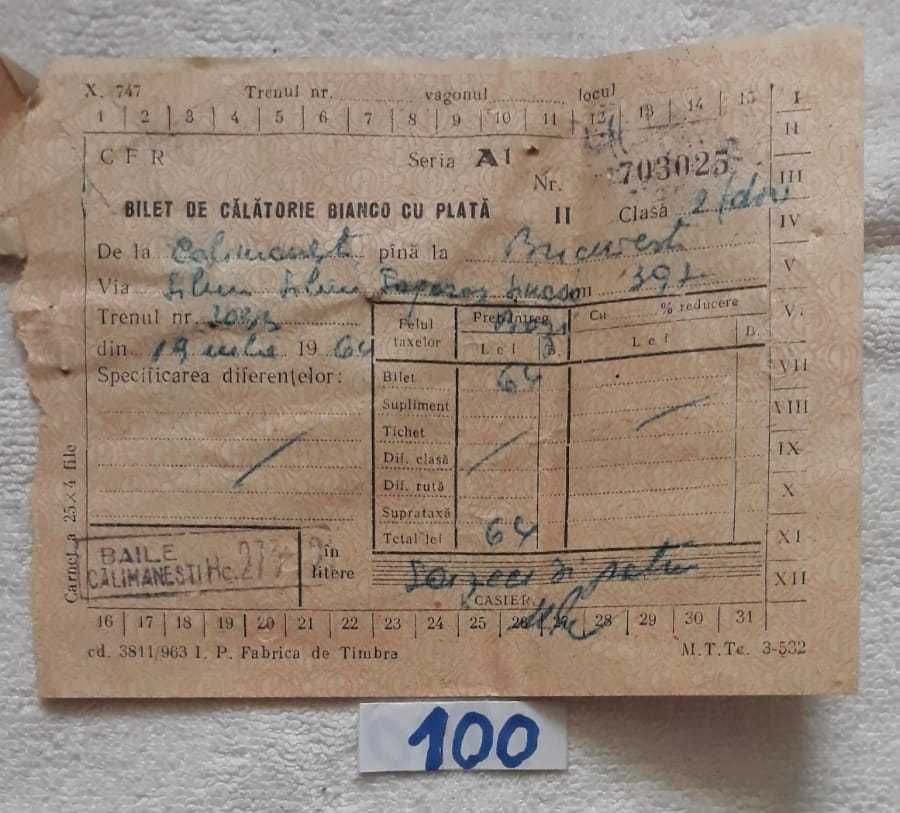 X. 747 Trenul nr. vagonul locul
1 2 3 4 5 6 7 8 9 10 11 12 13 14 15 I
II
C F R Seria A1
Nr. 703025 III
BILET DE CĂLĂTORIE BIANCO CU PLATĂ II Clasă 2/doi IV
De la Calimanesti pînă la Bucuresti
Via Sibiu V
Trenul nr.
din 19 iulie 1964
Specificarea diferențelor:
Felul taxelor Preț întreg Cu % reducere
Lei B. Lei B.
VI
Bilet 64 VII
Supliment VIII
Tichet
Dif. clasă IX
Dif. rută X
Suprataxă
Total lei 64 XI
în litere
CASIER XII
BAILE
CĂLIMANESTI Hc. 27
Carnet a 25×4 file
16 17 18 19 20 21 22 23 24 25 26 27 28 29 30 31
cd. 3811/963 I. P. Fabrica de Timbre M.T.Tc. 3-532
100